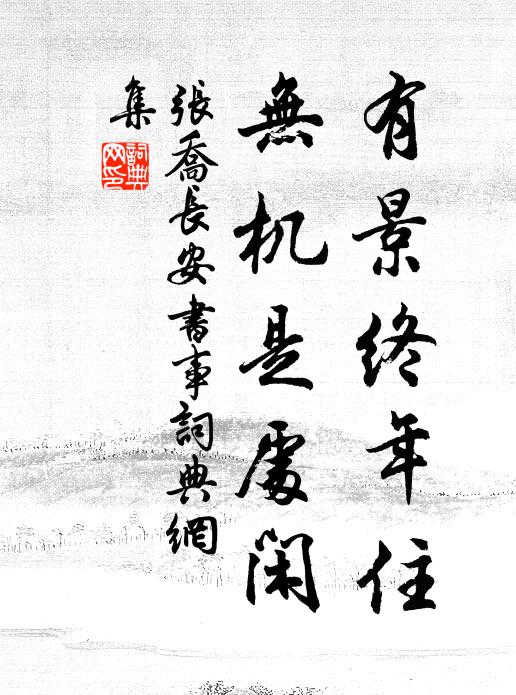 有景終年住
無机是處閑
張喬長安書事詞典網
集
詞典网印